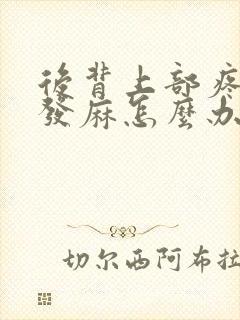 後背上部疼
發麻怎麼办
切尔西阿布拉